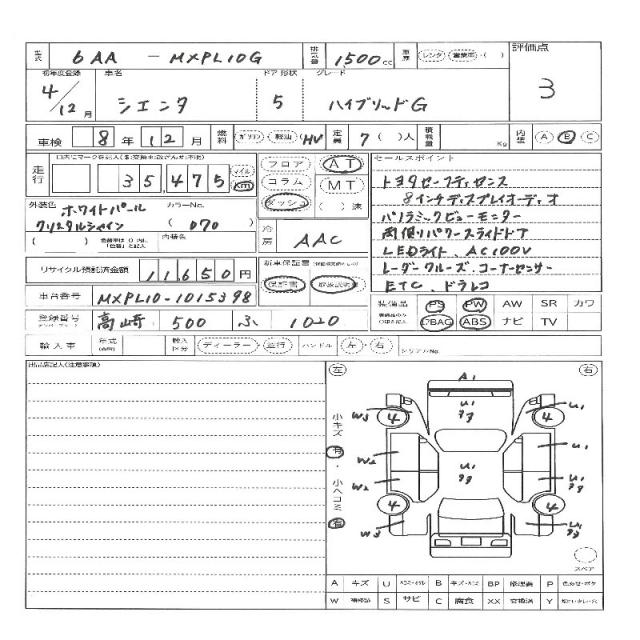 型式 6AA - MXPL10G 排気量 1500cc 車歴 レンタ・営業車・( ) 評価点
3
初年度登録 車名 ドア 形状 グレード
4/12月 シエンタ 5 ハイブリッドG
車検 8年12月 燃料 ガソリン 軽油 HV 定員 7( )人 積載量 Kg 内装 A B C
走行 35,475 マイル km
フロア AT
コラム MT
ダッシュ ( )速
セールスポイント
トヨタセーフティセンス
8インチディスプレイオーディオ
パノラミックビューモニター
両側パワースライドドア
LEDライト、AC100V
レーダークルーズ、コーナーセンサー
ETC、ドラレコ
外装色 ホワイトパール カラーNo.
クリスタルシャイン (070)
( ) 内装色
冷房 AAC
リサイクル預託済金額 11,650円
新車保証書
保証書 取扱説明書
車台番号 MXPL10-1015398
装備品 PS PW AW SR カワ
DBAG ABS ナビ TV
登録番号 高崎 500 ふ 1020
輸入車 年式 輸入区分 ディーラー・並行 ハンドル 左・右 シリアルNo.
出品店記入(注意事項)
左 右
小キズ 有・小ヘコミ 有
A1
U1
W3 4 4 U1
W2 U1
W2 U1 U1
4 4
W3 U1
スペア
A キズ U B BP 修理跡 P
W 補修跡 S サビ C 腐食 XX 交換済 Y